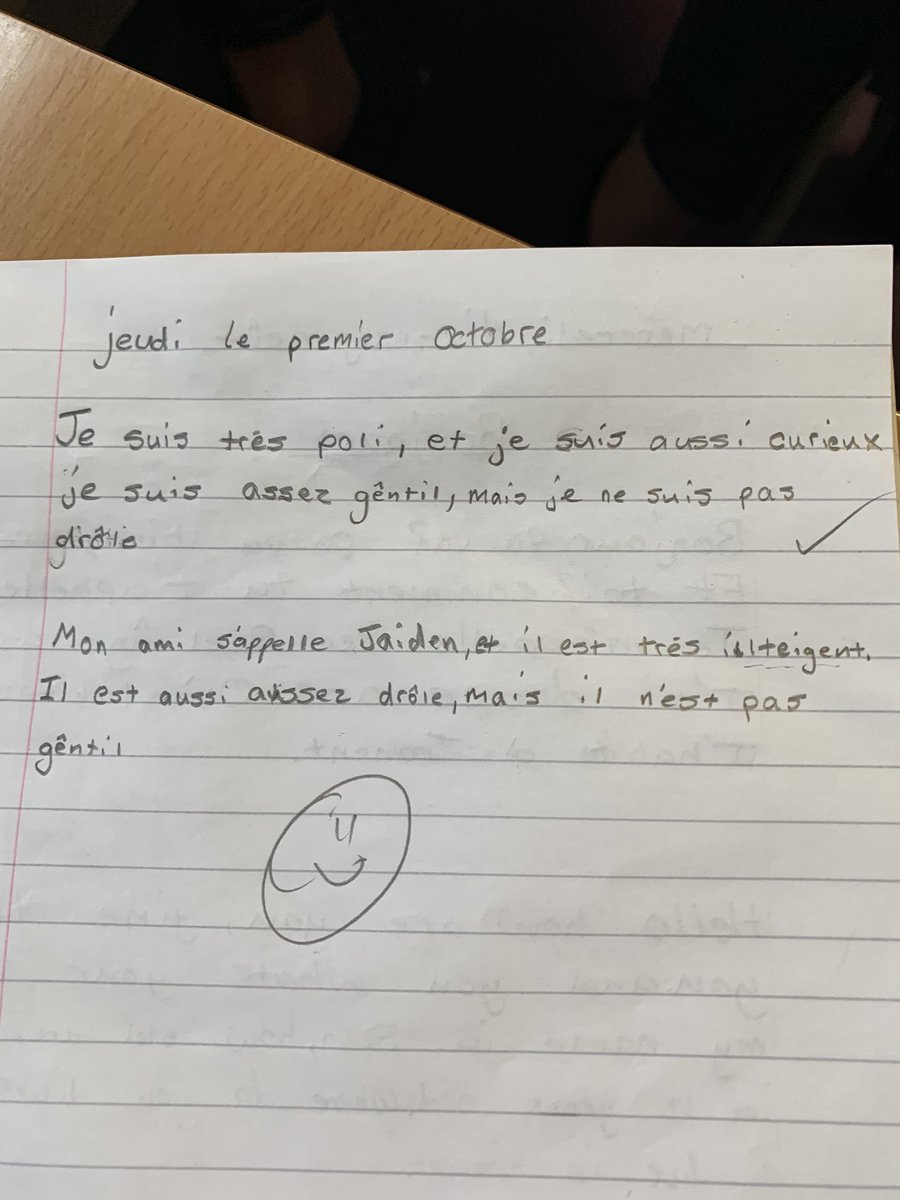 jeudi le premier octobre
Je suis très poli, et je suis aussi curieux
je suis assez gêntil, mais je ne suis pas
drôle
Mon ami s'appelle Jaiden, et il est trés illteigent.
Il est aussi assez drôle, mais il n'est pas
gêntil